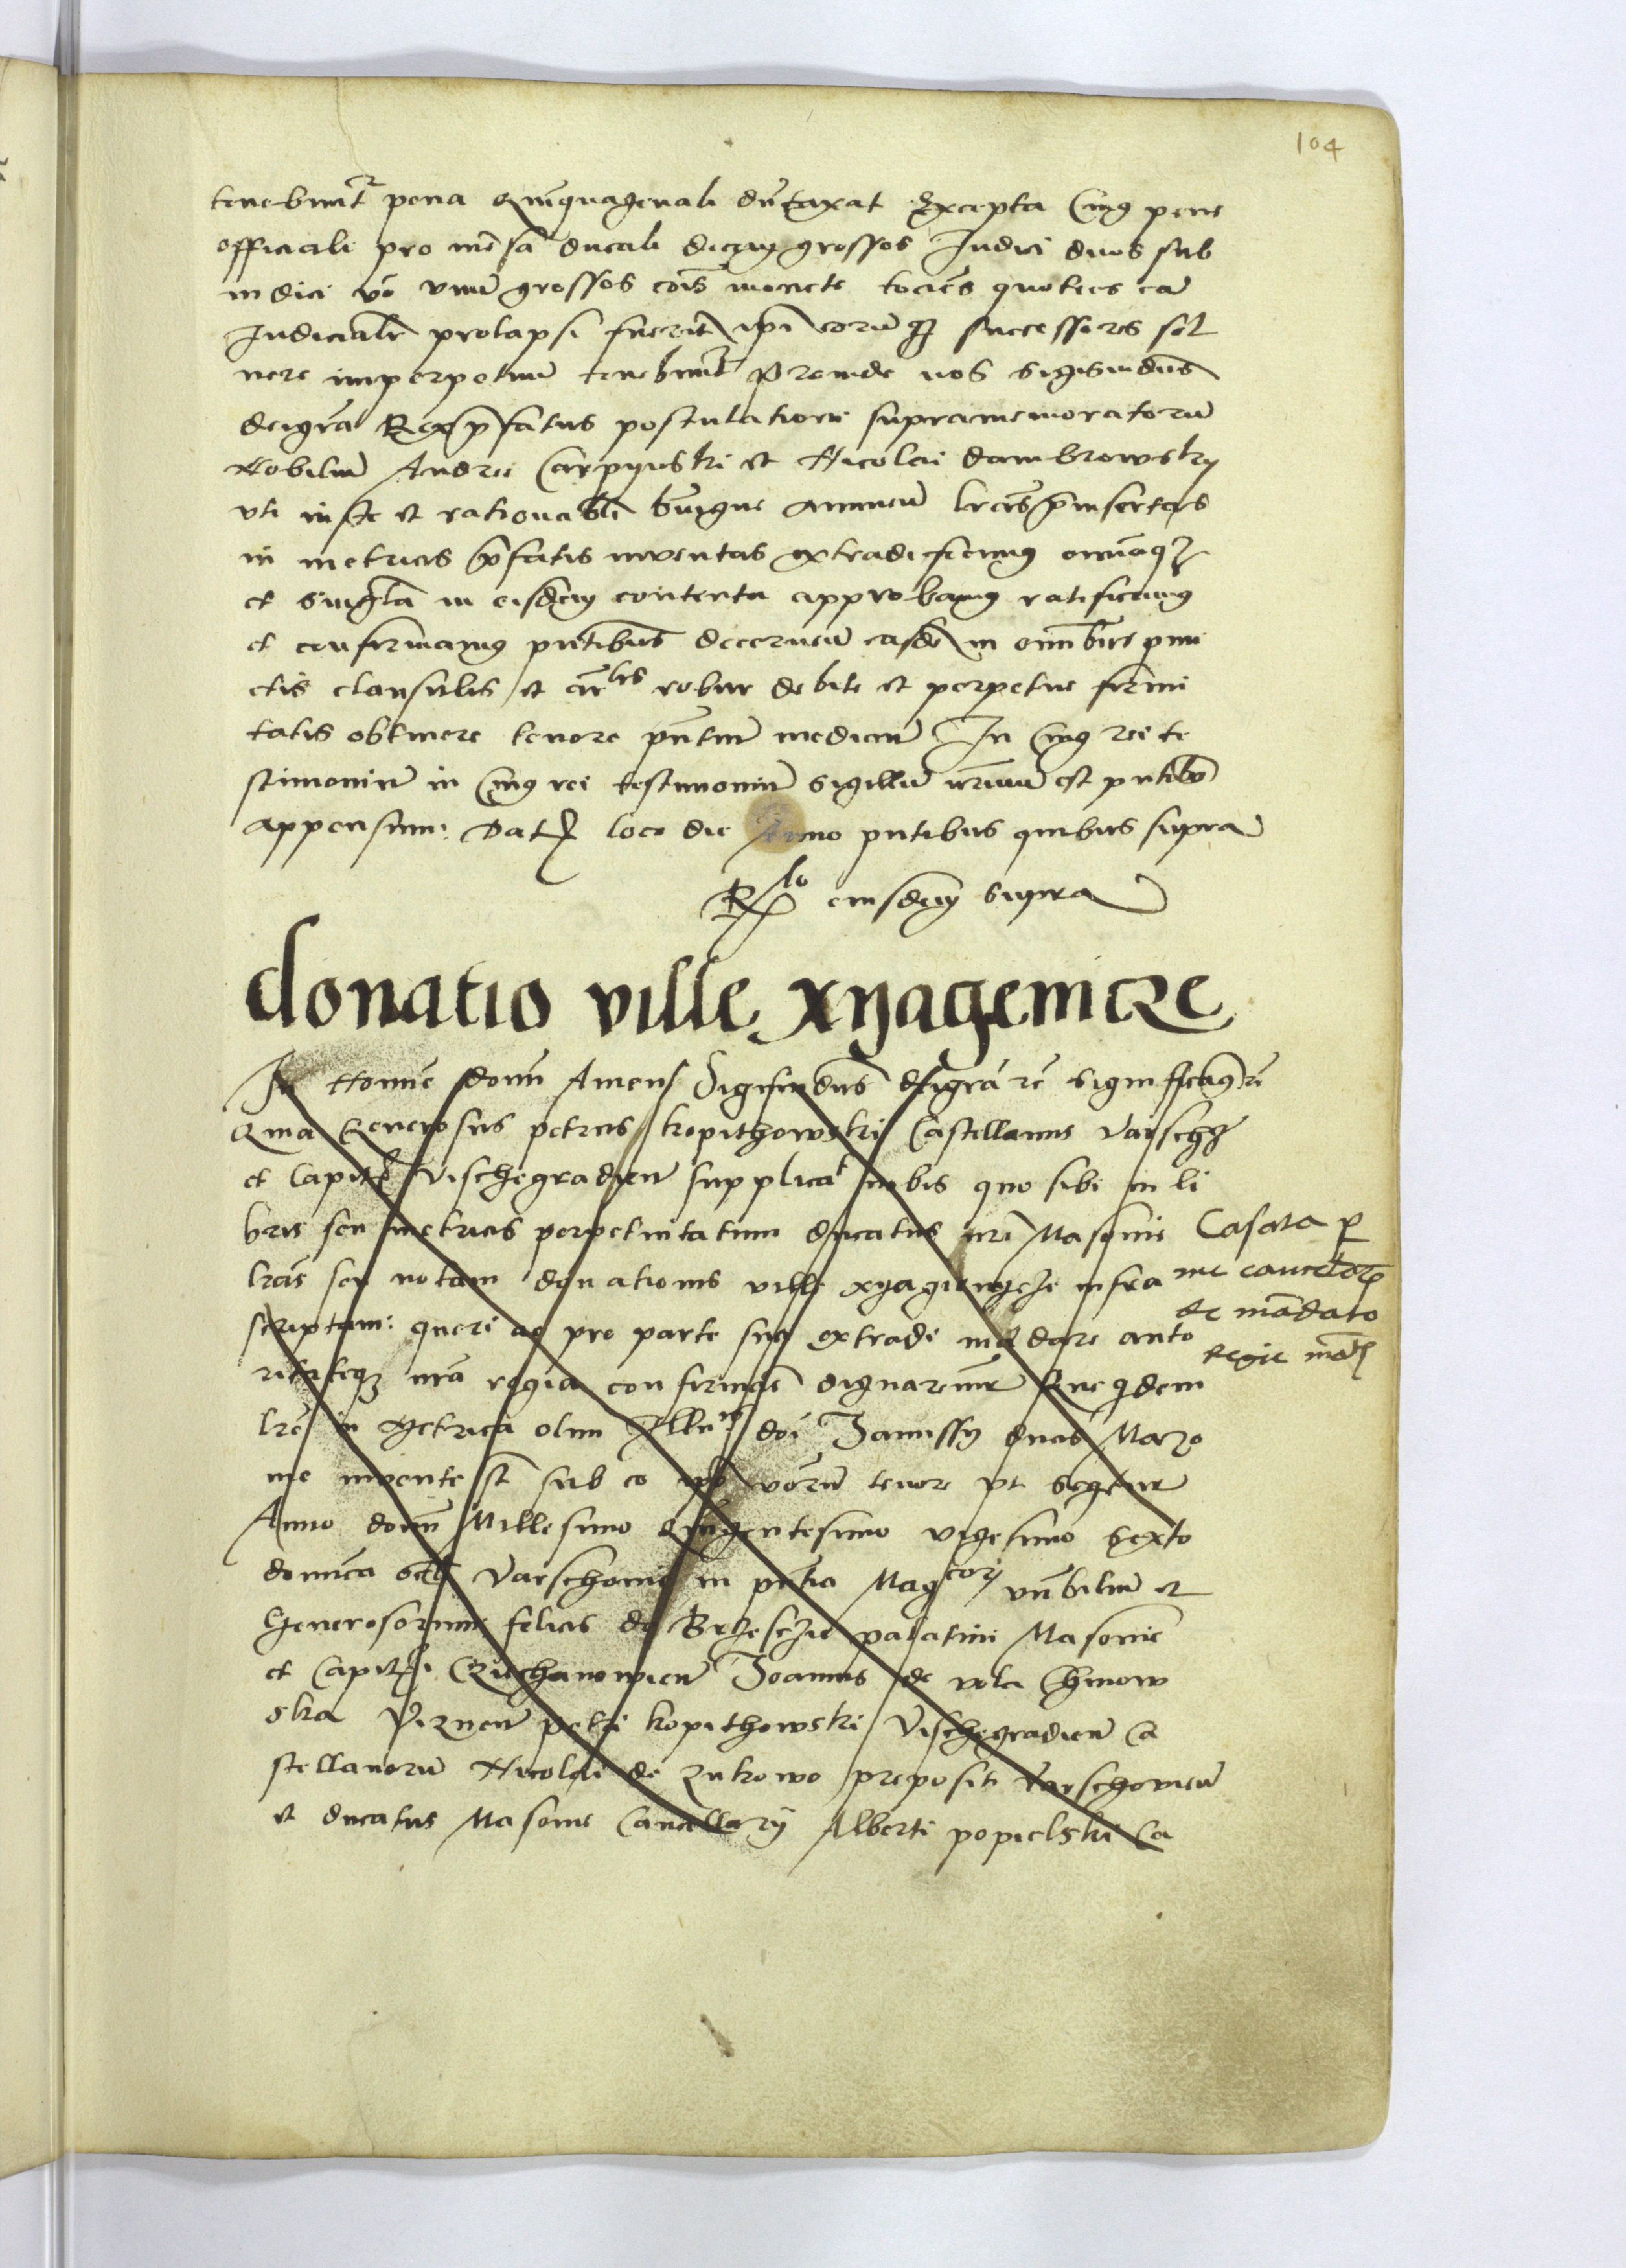 104
tenebunt᷑ pena Qui͂quagenali du͂taxat Excepta Cuiꝯ pene
officiali pro me͂sa ducali decem grossos Iudici duos sub
iudici vo͂ vnu͂ grossos co͞is monete tocie͂s quoties ea͂
Iudicialr͂ prolapsi fueri͂t ip͞i eoru͂qꝫ successores sol
uere imperpetuu͂ tenebunt᷑ Proinde nos Sigismu͂dus
dei gr͞a Rex p͞fatus postulationi supramemoratoru͂
Nobiliu͂ Andree Carpynski et Nicolai dambrowsky
vti iuste et rationabli͂ benigne annueu͂ lr͞as p͞insertas
in metricis p͞fatis inuentas extradi fecimꝯ omniaqꝫ
et singl͞a in eisdem contenta approbamꝯ ratificamꝯ
et confirmamꝯ pn͞tibus decerneu͂ easde͂ in om͞ibus pun
ctis clausulis et ar͞lis robur debite et perpetue firmi
tatis obtinere tenore pn͞tiu͂ mediau͂ In Cuiꝯ rei te
stimoniu͂ in Cuiꝯ rei testimoniu͂ sigillu͂ nr͞um est pn͞tibꝯ
appensum: Dat͂ loco die Anno pn͞tibus quibus supra
R͂lo eiusdem supra
donatio ville xyagenicze
In Nomine domi͂ Amen Sigismu͂dus dei gr͞a re͂ significamꝯ
Quia Generosus petrus kopithowski Castellanus Varsch͂
et Capit͂ Vischegradien͂ supplicat͂ nobis quo sibi in li
bris seu metricis perpetuitatum ducatus nr͞i Masouie
lr͞as seu notam donationis ville xyagienycze infra
scriptam: queri ac pro parte sua extradi ma͂dare aucto
ritateqꝫ nr͞a regia confirmare͂ dignaremur Que q͂dem
lr͞e in Metrica olim Illu͂ do͞i Janussy ducis Mazo
uie inuente st͂ sub eo qui vero͂ru͂ tenore vt seq͂tur
Anno domi͂ Millesimo Quingentesimo vigesimo sexto
domi͂ca Varschouie in pn͞tia Mag͂corꝫ vn͞bilium et
Generosorum felicis de Brzesczie palatini Masouie
et Capit͂ Cziechanowien͂ Joannis de vola Chinow
ska Viznen͂ petri kopithowski Vischegradien͂ Ca
stellanoru͂ Nicolai de zukowo prepositi Varschouien͂
et ducatus Masouie Cancellarij Alberti popielski Ca
Casata p
me cancellor͂
de ma͂dato
Regie ma͂tis